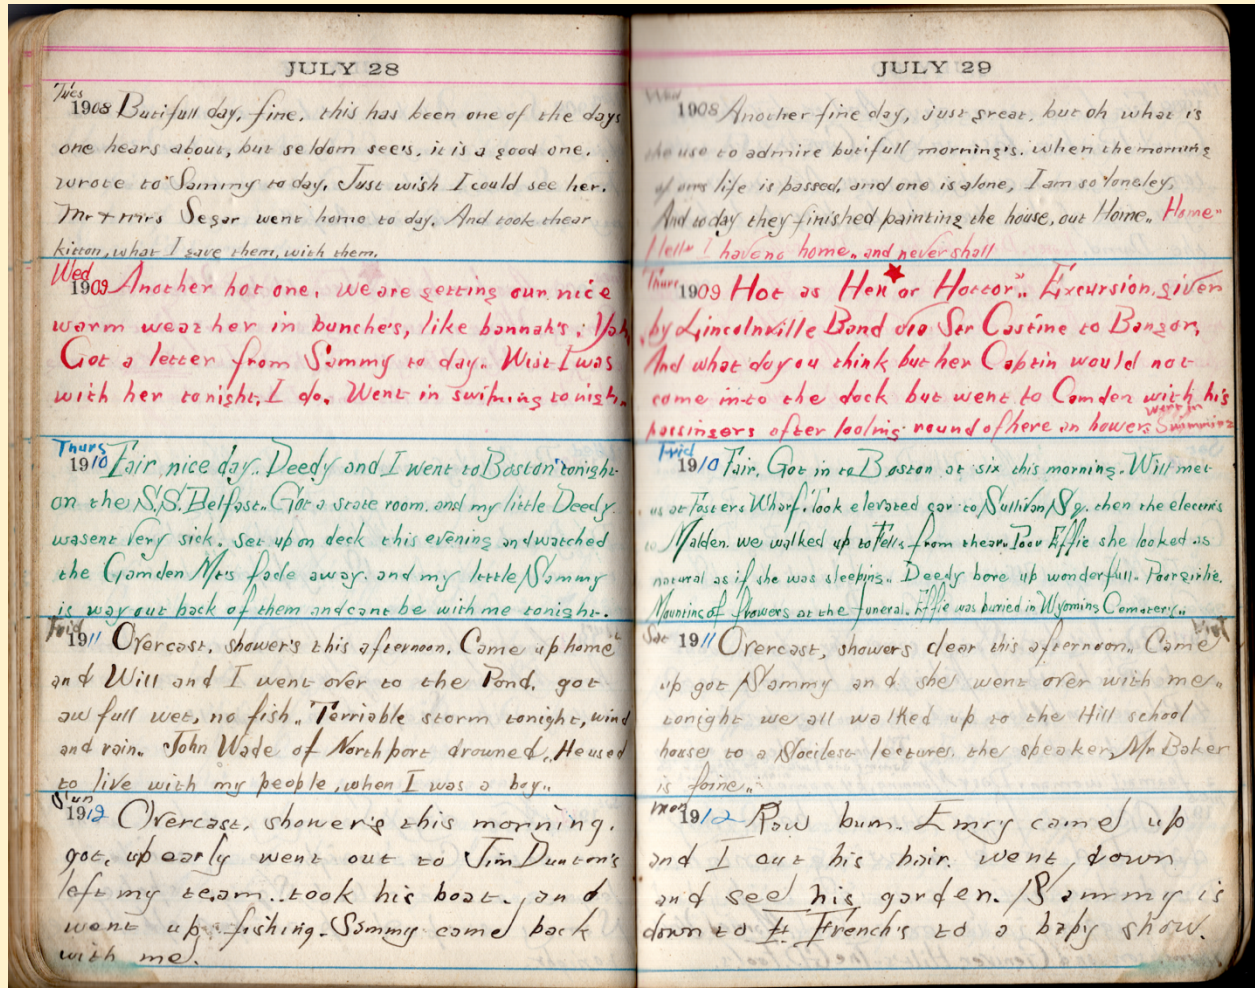 JULY 28
Tues
1908 Butifull day, fine, this has been one of the days
one hears about, but seldom see's, it is a good one.
wrote to Sammy to day, Just wish I could see her.
Mr + mrs Segar went home to day. And took thear
kitton, what I gave them, with them.
Wed
1909 Another hot one. We are getting our nice
warm weather in bunche's, like bannah's; Yah
Got a letter from Sammy to day.. Wist I was
with her tonight, I do. Went in swiming tonigh..
Thurs
1910 Fair, nice day.. Deedy and I went to Boston tonight
on the S.S. Belfast.. Got a state room, and my little Deedy
wasent very sick. set up on deck this evening and watched
the Camden Mt's fade away. and my little Sammy
is way out back of them and cant be with me tonight.
Frid
1911 Overcast, shower's this afternoon. Came up home
and Will and I went over to the Pond. got
awfull wet, no fish.. Terriable storm tonight, wind
and rain.. John Wade of Northport drowned.. He used
to live with my people, when I was a boy..
Sun
1912 Overcast, shower's this morning.
got, up early went out to Jim Dunton's
left my team.. took his boat, and
went up fishing. Sammy came back
with me.
JULY 29
1908 Another fine day, just great, but oh what is
the use to admire butifull morning's. when the morning
of ones life is passed, and one is alone, I am so loneley,
And today they finished painting the house, out Home.. Home"
Hell" I have no home.. and never shall
Thurs
1909 Hot as Hell or Hottor".. Excursion, given
by Lincolnville Band via Str Castine to Bangor,
And what do you think but her Captin would not
come in-to the dock but went to Camden with his
passingors after looling round of here an howers went in Swimming
Frid
1910 Fair, Got in to Boston at six this morning. Will met
us at Fosters Wharf. Took elevated car to Sullivan Sq. then the electrics
to Malden. we walked up to Fells from thear. Poor Effie she looked as
natural as if she was sleeping.. Deedy bore up wonderfull.. Poor girlie.
Mounting of flowers at the funeral. Effie was buried in Wyoming Cematery..
Sat
1911 Overcast, showers clear this afternoon.. Came
up got Sammy and she went over with me..
tonight we all walked up to the Hill school
house to a Socilest lectures, the speaker, Mr Baker
is foine..
mon
1912 Raw bum. Emry came up
and I cut his hair. went down
and see his garden. Sammy is
down to Et French's to a baby show.